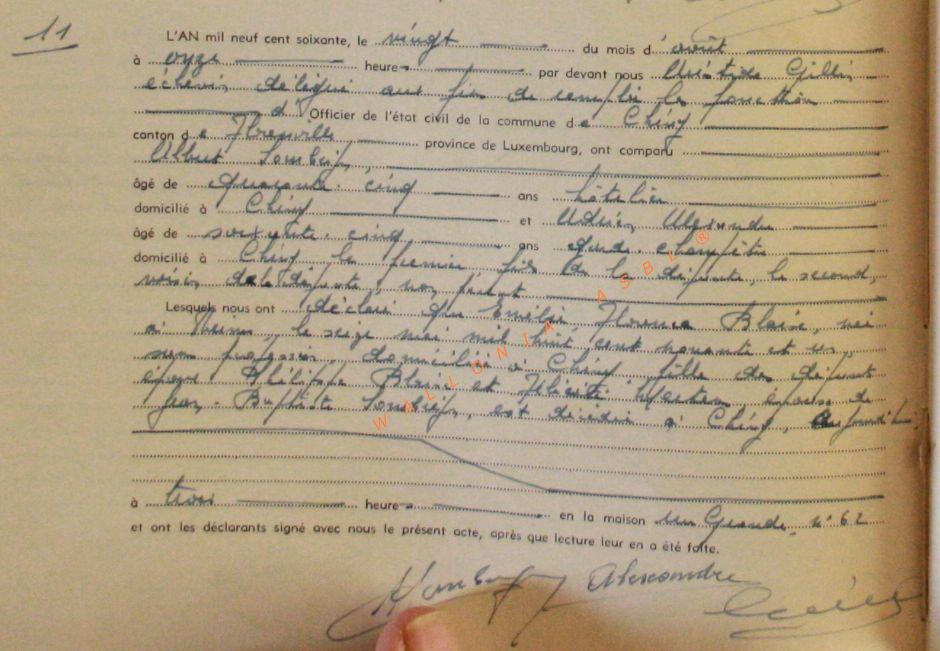 11
L'AN mil neuf cent soixante, le vingt du mois d'août
à onze heure par devant nous Aristide
échevin délégué aux fins de remplir la fonction
d'Officier de l'état civil de la commune de Chiny
canton de Florenville province de Luxembourg, ont comparu
Albert
âgé de quarante-cinq ans hôtelier
domicilié à Chiny et Adrien Alexandre
âgé de soixante-cinq ans garde-champêtre
domicilié à Chiny, le premier fils de la défunte, le second,
voisin de la défunte, non parent
Lesquels nous ont déclaré que Emélie Florence Blaise, née
à le seize mai mil huit cent nonante et un,
sans profession, domiciliée à Chiny, fille des défunts
époux Blaise et Félicité épouse de
Jean-Baptiste est décédée à Chiny,
à trois heure en la maison n° 62
et ont les déclarants signé avec nous le présent acte, après que lecture leur en a été faite.
Alexandre
WALLONIA ASBL ®